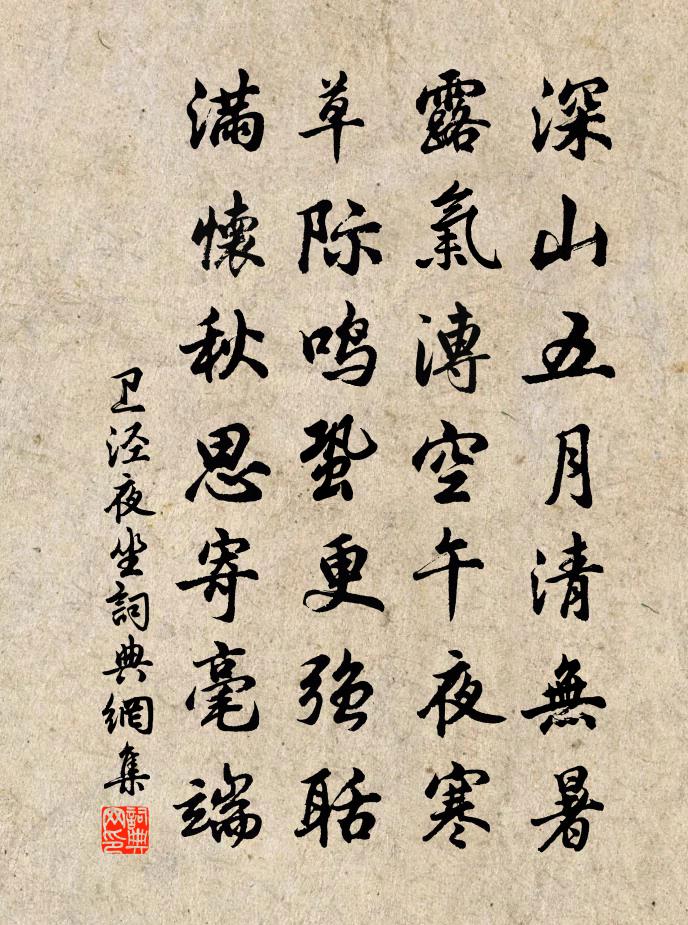 深山五月清無暑
露氣溥空午夜寒
草际鸣蛩更强聒
满懷秋思寄毫端
卫泾夜坐詞典網集
詞典网印